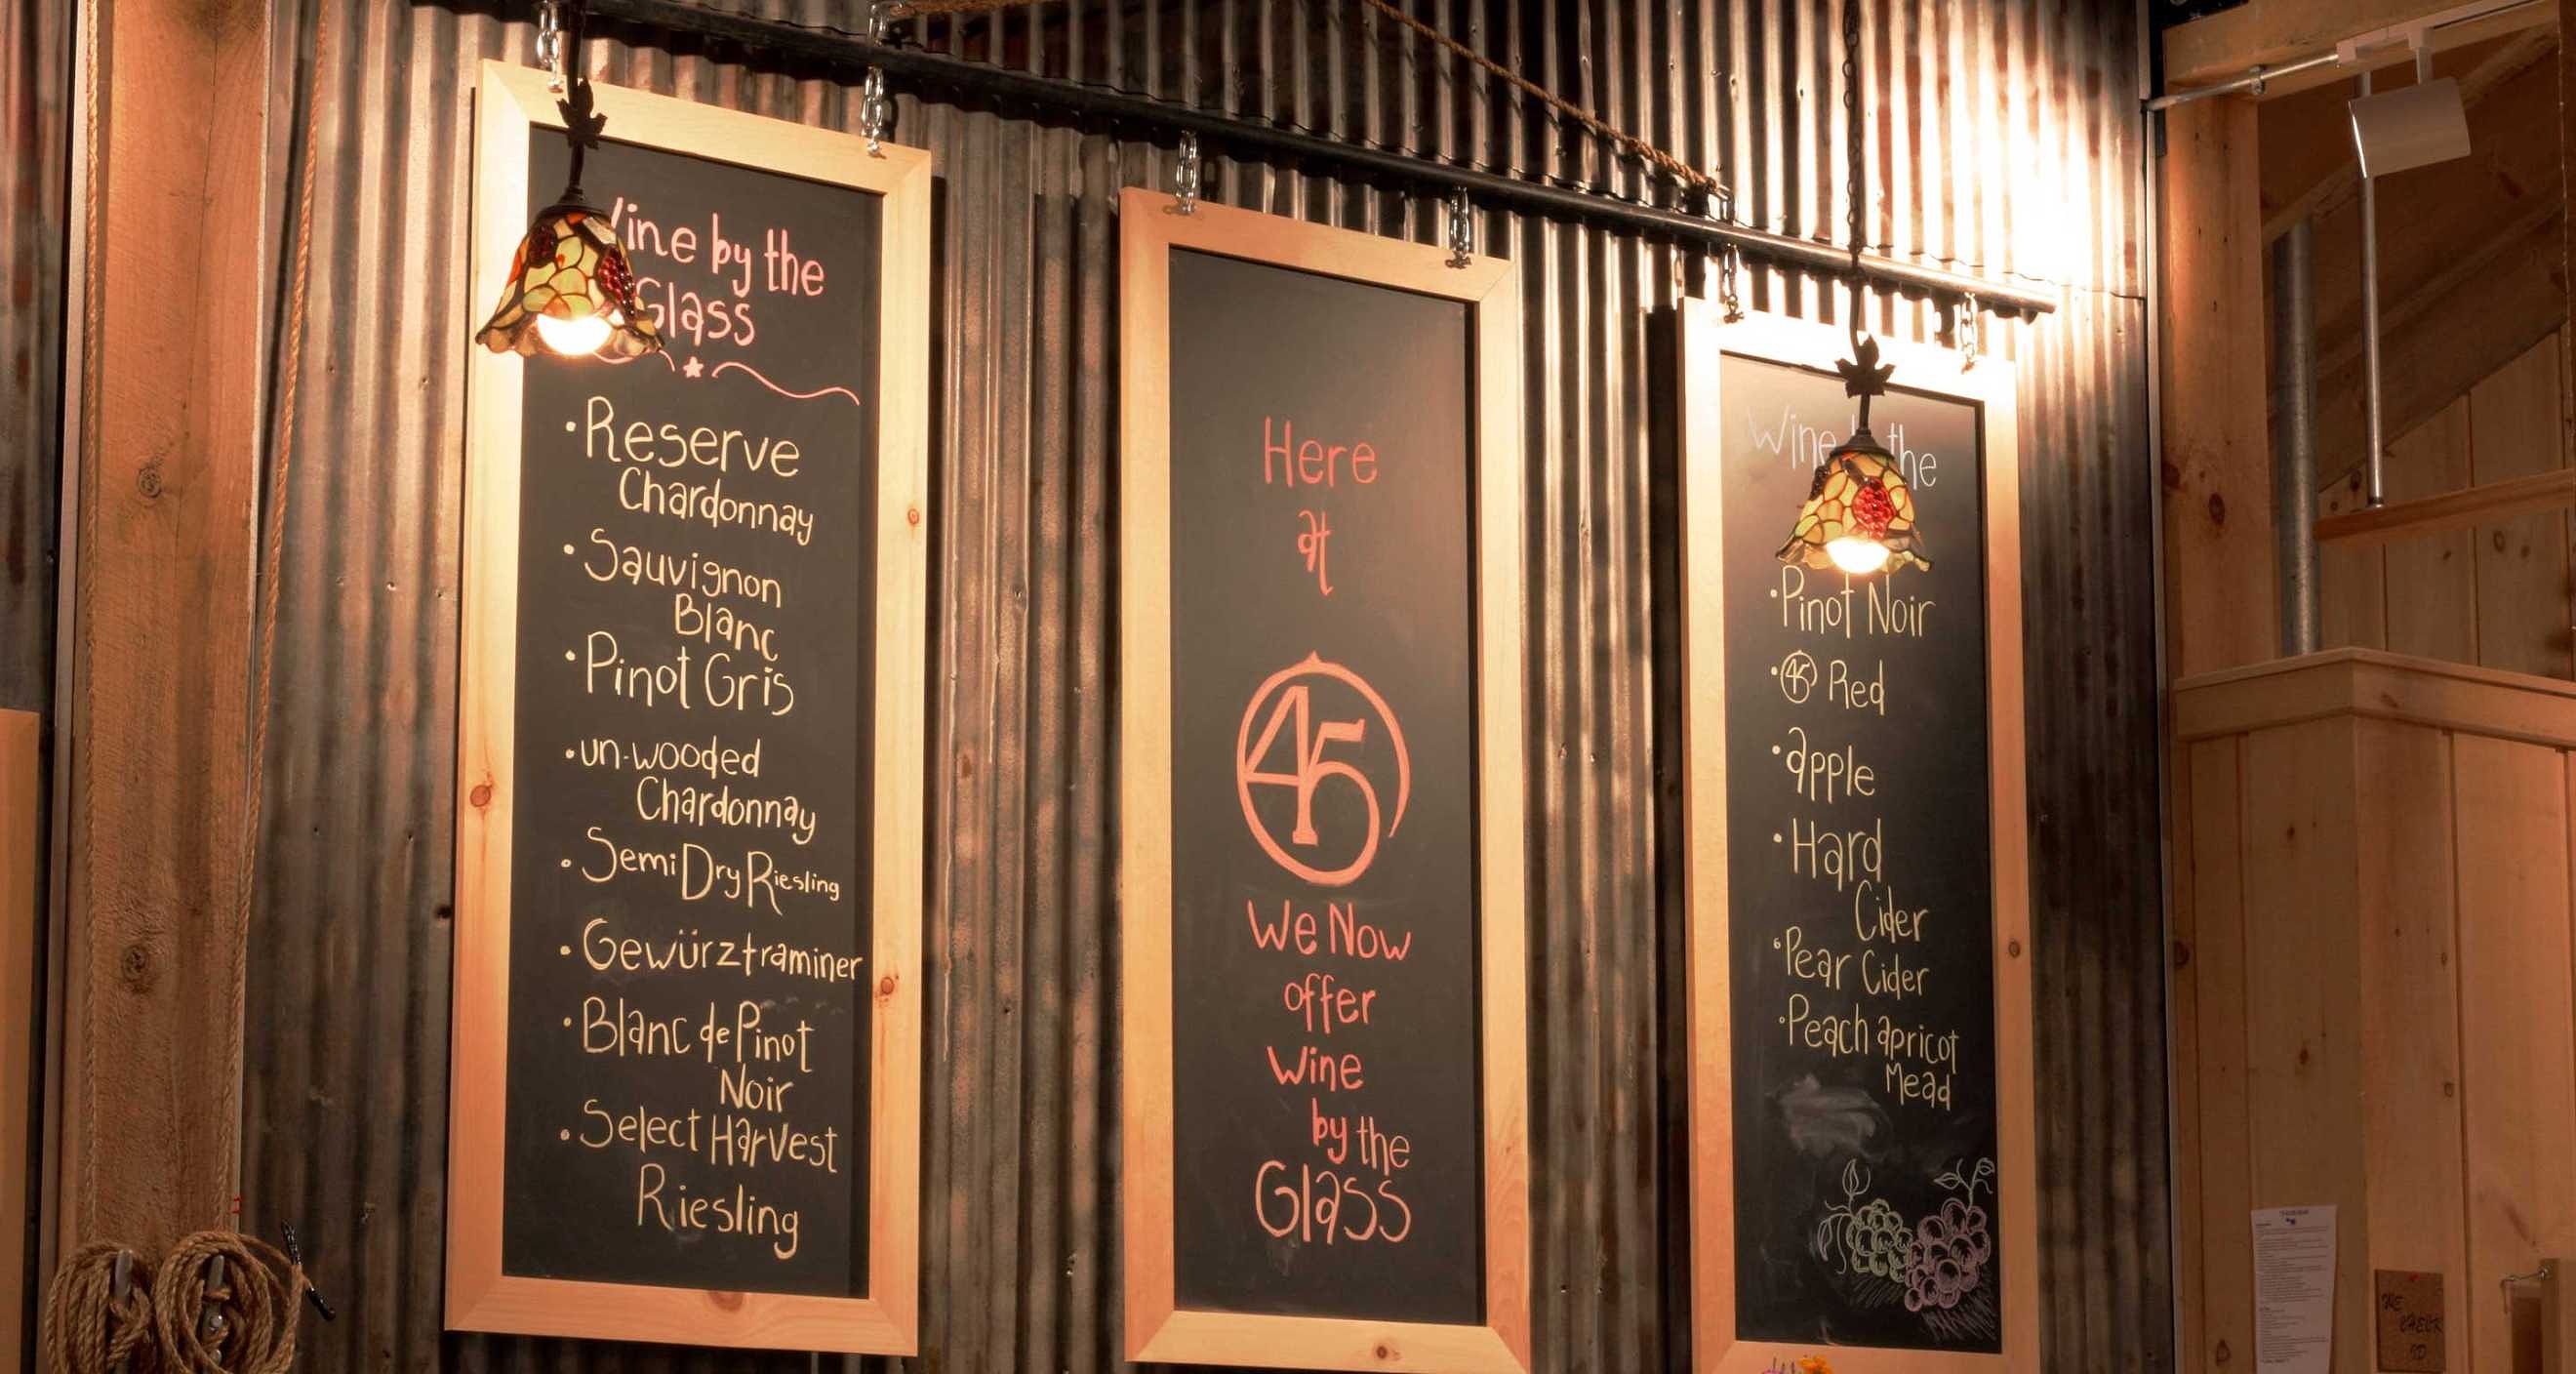 Wine by the
Glass
· Reserve
Chardonnay
· Sauvignon
Blanc
· Pinot Gris
· un-wooded
Chardonnay
· Semi Dry Riesling
· Gewürztraminer
· Blanc de Pinot
Noir
· Select Harvest
Riesling
Here
at
45
We Now
offer
Wine
by the
Glass
Wine the
· Pinot Noir
· 45 Red
· apple
· Hard
Cider
· Pear Cider
· Peach apricot
Mead
WE
CHECK
ID